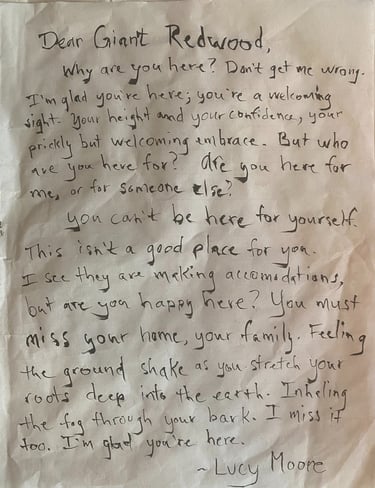 Dear Giant Redwood,
Why are you here? Don't get me wrong.
I'm glad you're here; you're a welcoming
sight. Your height and your confidence, your
prickly but welcoming embrace. But who
are you here for? Are you here for
me, or for someone else?
You can't be here for yourself.
This isn't a good place for you.
I see they are making accomodations,
but are you happy here? You must
miss your home, your family. Feeling
the ground shake as you stretch your
roots deep into the earth. Inhaling
the fog through your bark. I miss it
too. I'm glad you're here.
~ Lucy Moore